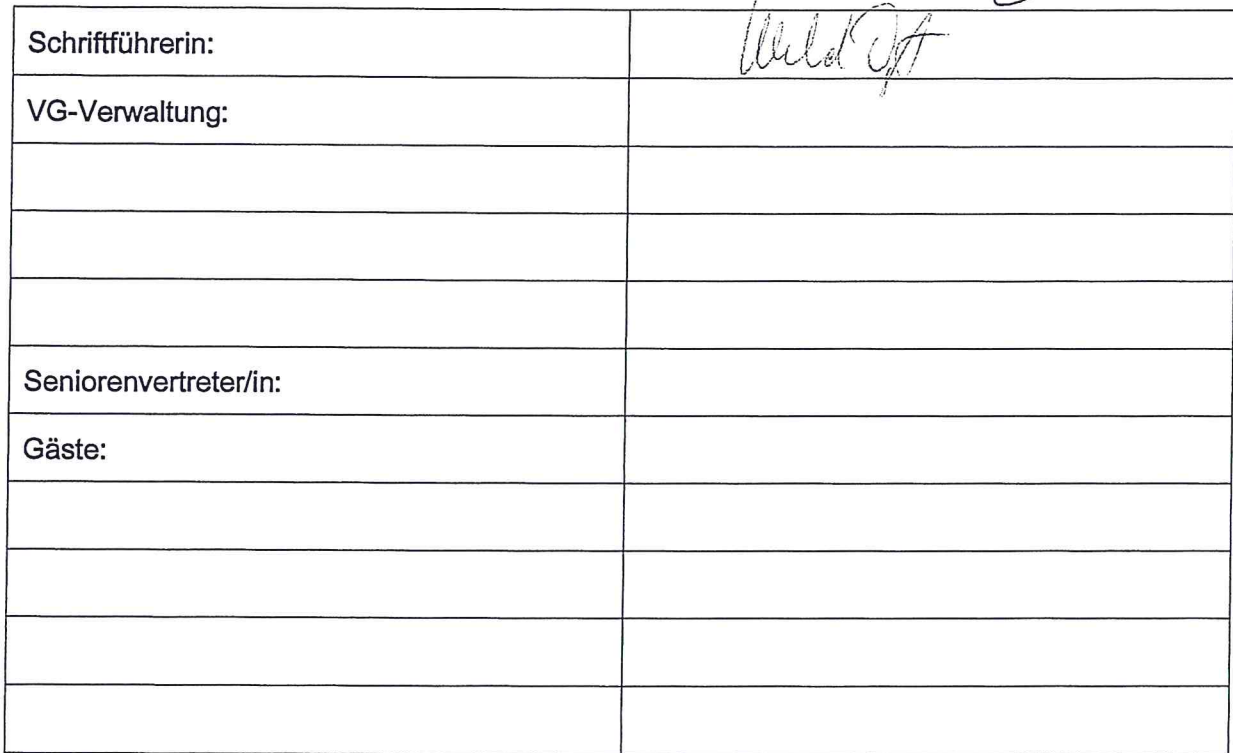 Schriftführerin:
VG-Verwaltung:
Seniorenvertreter/in:
Gäste: